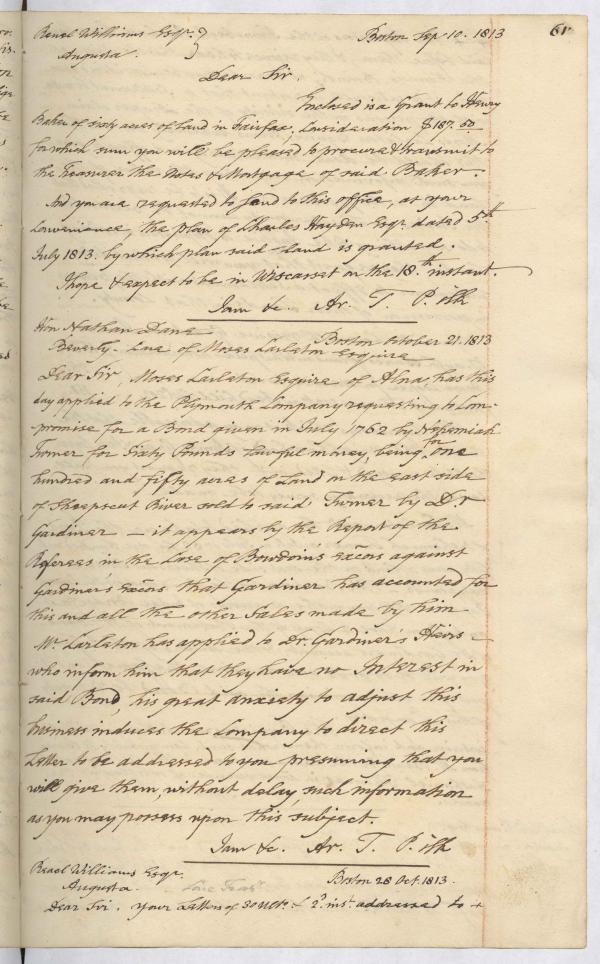 Reuel Williams Esqr. } Boston Sep 10. 1813 61
Augusta.
Dear Sir.
Enclosed is a Grant to Henry
Baker of sixty acres of Land in Fairfax, Consideration $187.50
for which sum you will be pleased to procure & transmit to
the Treasurer the Notes & Mortgage of said Baker.
And you are requested to send to this office, at your
Convenience, the plan of Charles Hayden Esqr. dated 5th
July 1813. by which plan said Land is granted.
I hope & expect to be in Wiscasset on the 18th instant.
I am &c. Ar. T. P. ilk
Hon Nathan Dane
Boston October 21. 1813
Beverly. Case of Moses Carleton Esquire
Dear Sir, Moses Carleton Esquire of Alna, has this
day applied to the Plymouth Company requesting to Com-
promise for a Bond given in July 1762 by Nehemiah
Turner for Sixty Pounds Lawful money, being for one
hundred and fifty acres of Land on the east side
of Sheepscut River sold to said Turner by Dr
Gardiner — it appears by the Report of the
Referees in the Case of Bowdoins Excors against
Gardiner's Excors that Gardiner has accounted for
this and all the other Sales made by him
Mr Carleton has applied to Dr. Gardiner's Heirs -
who inform him that they have no Interest in
said Bond, his great anxiety to adjust this
business induces the Company to direct this
Letter to be addressed to you presuming that you
will give them, without delay, such information
as you may possess upon this subject.
I am &c. Ar. T. P. ilk
Reuel Williams Esqr. Boston 28 Oct. 1813.
Augusta.
Dear Sir. Your Letters of 30 Ulto. & 2d. inst. addressed to